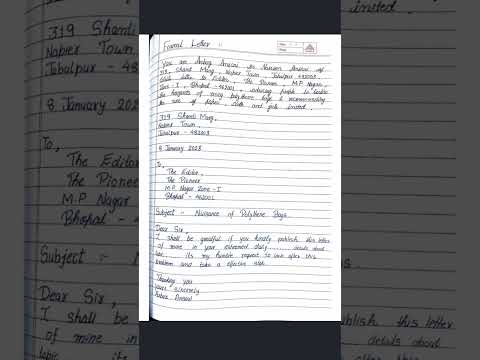 Formal Letter :-
You are Andrag Ansari or Nausen Ansari of
319, Shanti Marg, Napier Town, Jabalpur - 482003
letter to Editor, The Pioneer, M.P. Nagar
Zone - I, Bhopal - 462001, people to
the hazards of using polythene bags & recommending
the use of paper, cloth and jute instead.
319 Shanti Marg,
Napier Town,
Jabalpur - 482003
8 January 2023
To,
The Editor,
The Pioneer
M.P. Nagar Zone - I
Bhopal - 462001
Subject :- Nuisance of Polythene Bags.
Dear Sir,
I shall be greatful if you kindly publish this letter
of mine in your esteemed daily ......... details about
topic ........ its my humble request to look after this
problem and take a effective
Thanking you
Yours sincerely
Ansari
instead.
319 Shanti
Napier Town,
Jabalpur - 48
8 January 202
To,
The Editor
The Pioneer
M.P Nagar
Bhopal - 4
Subject :- N
Dear Sir,
I shall be
of mine in
topic its
publish this letter
details about
this